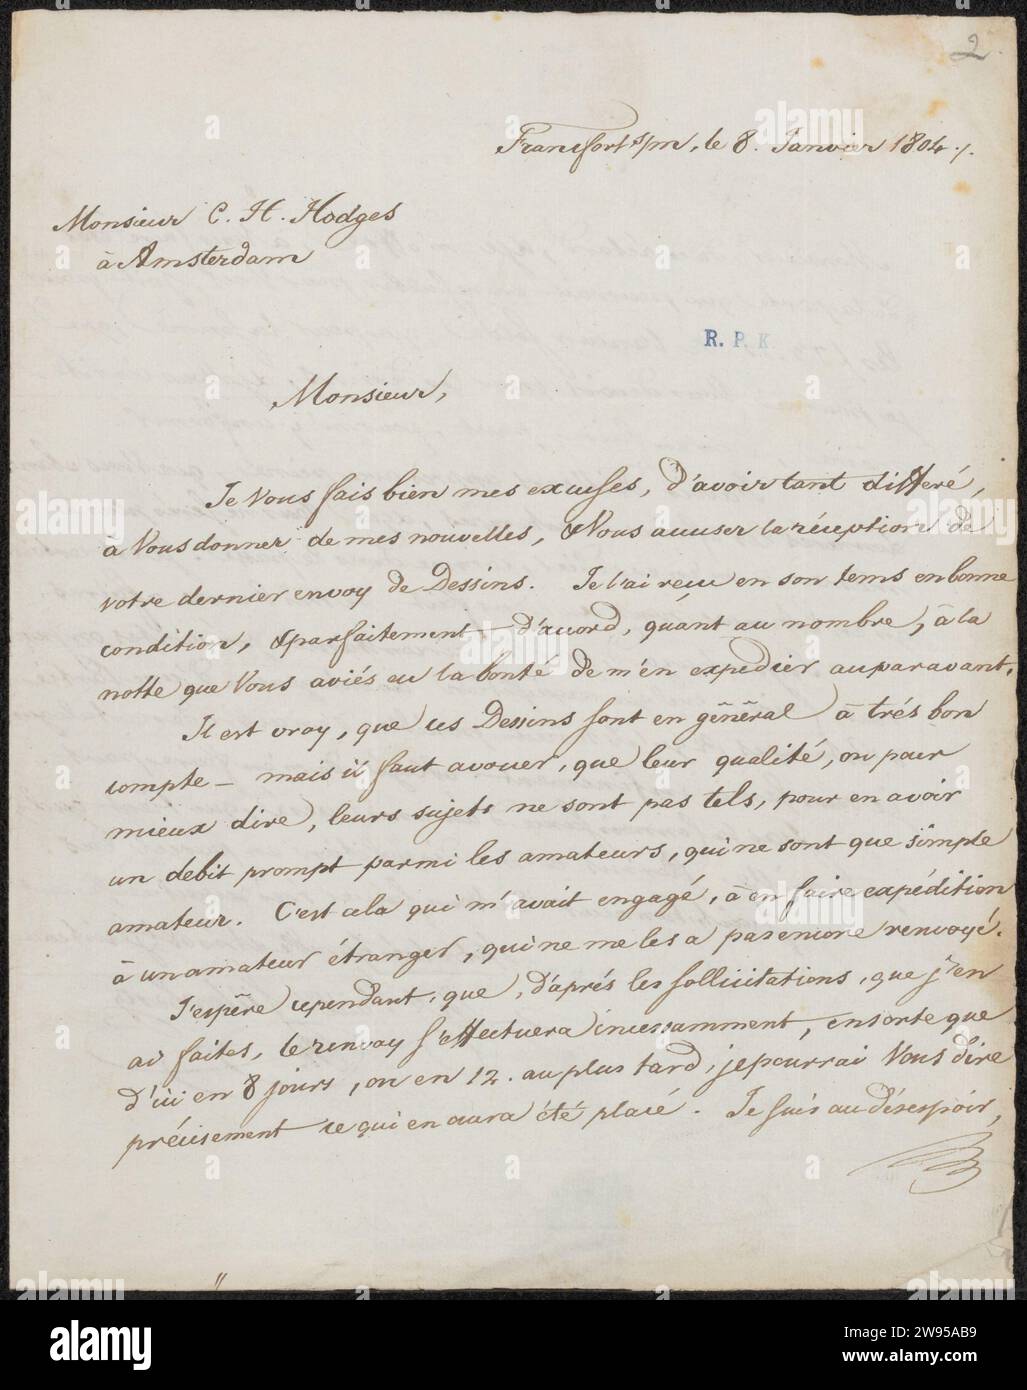 2.
Francfort s/m, le 8. Janvier 1804./.
Monsieur C. H. Hodges
à Amsterdam
R. P. K
Monsieur,
Je Vous fais bien mes excuses, d'avoir tant différé,
à Vous donner de mes nouvelles, & Vous accuser la réception de
votre dernier envoy de Dessins. Je l'ai reçu en son tems en bonne
condition, & parfaitement d'accord, quánt au nombre, à la
notte que Vous aviés eu la bonté de m'en expedier auparavant.
Il est vray, que ces Dessins sont en général à trés bon
compte – mais il faut avouer, que leur qualité, ou pour
mieux dire, leurs sujets ne sont pas tels, pour en avoir
un debit prompt parmi les amateurs, qui ne sont que simple
amateur. C'est cela qui m'avait engagé, à en faire expédition
à un amateur étranger, qui ne me les a pas encore renvoyé.
J'espère cependant, que, d'aprés les sollicitations, que j'en
ai faites, le renvoy s'effectuera incessamment, ensorte que
d'ici en 8 jours, ou en 12. au plus tard, je pourrai Vous dire
précisement ce qui en aura été placé. Je suis au désespoir,
alamy
Image ID: 2W95AB9
www.alamy.com